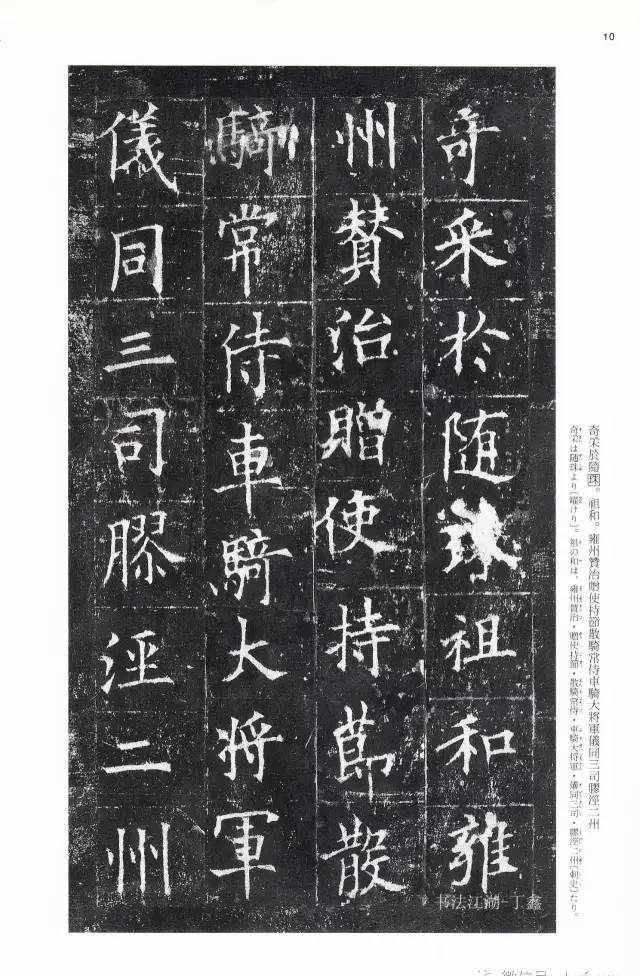 10
奇采於随珠祖和雍
州賛治贈使持節散
騎常侍車騎大将軍
儀同三司膠涇二州
奇采於隨珠。祖和。雍州贊治贈使持節散騎常侍車騎大將軍儀同三司膠涇二州
奇采は随珠より[耀けり]。祖の和は、雍州賛治・贈使持節・散騎常侍・車騎大将軍・儀同三司・膠涇二州[刺史]たり。
书法江湖-丁鑫